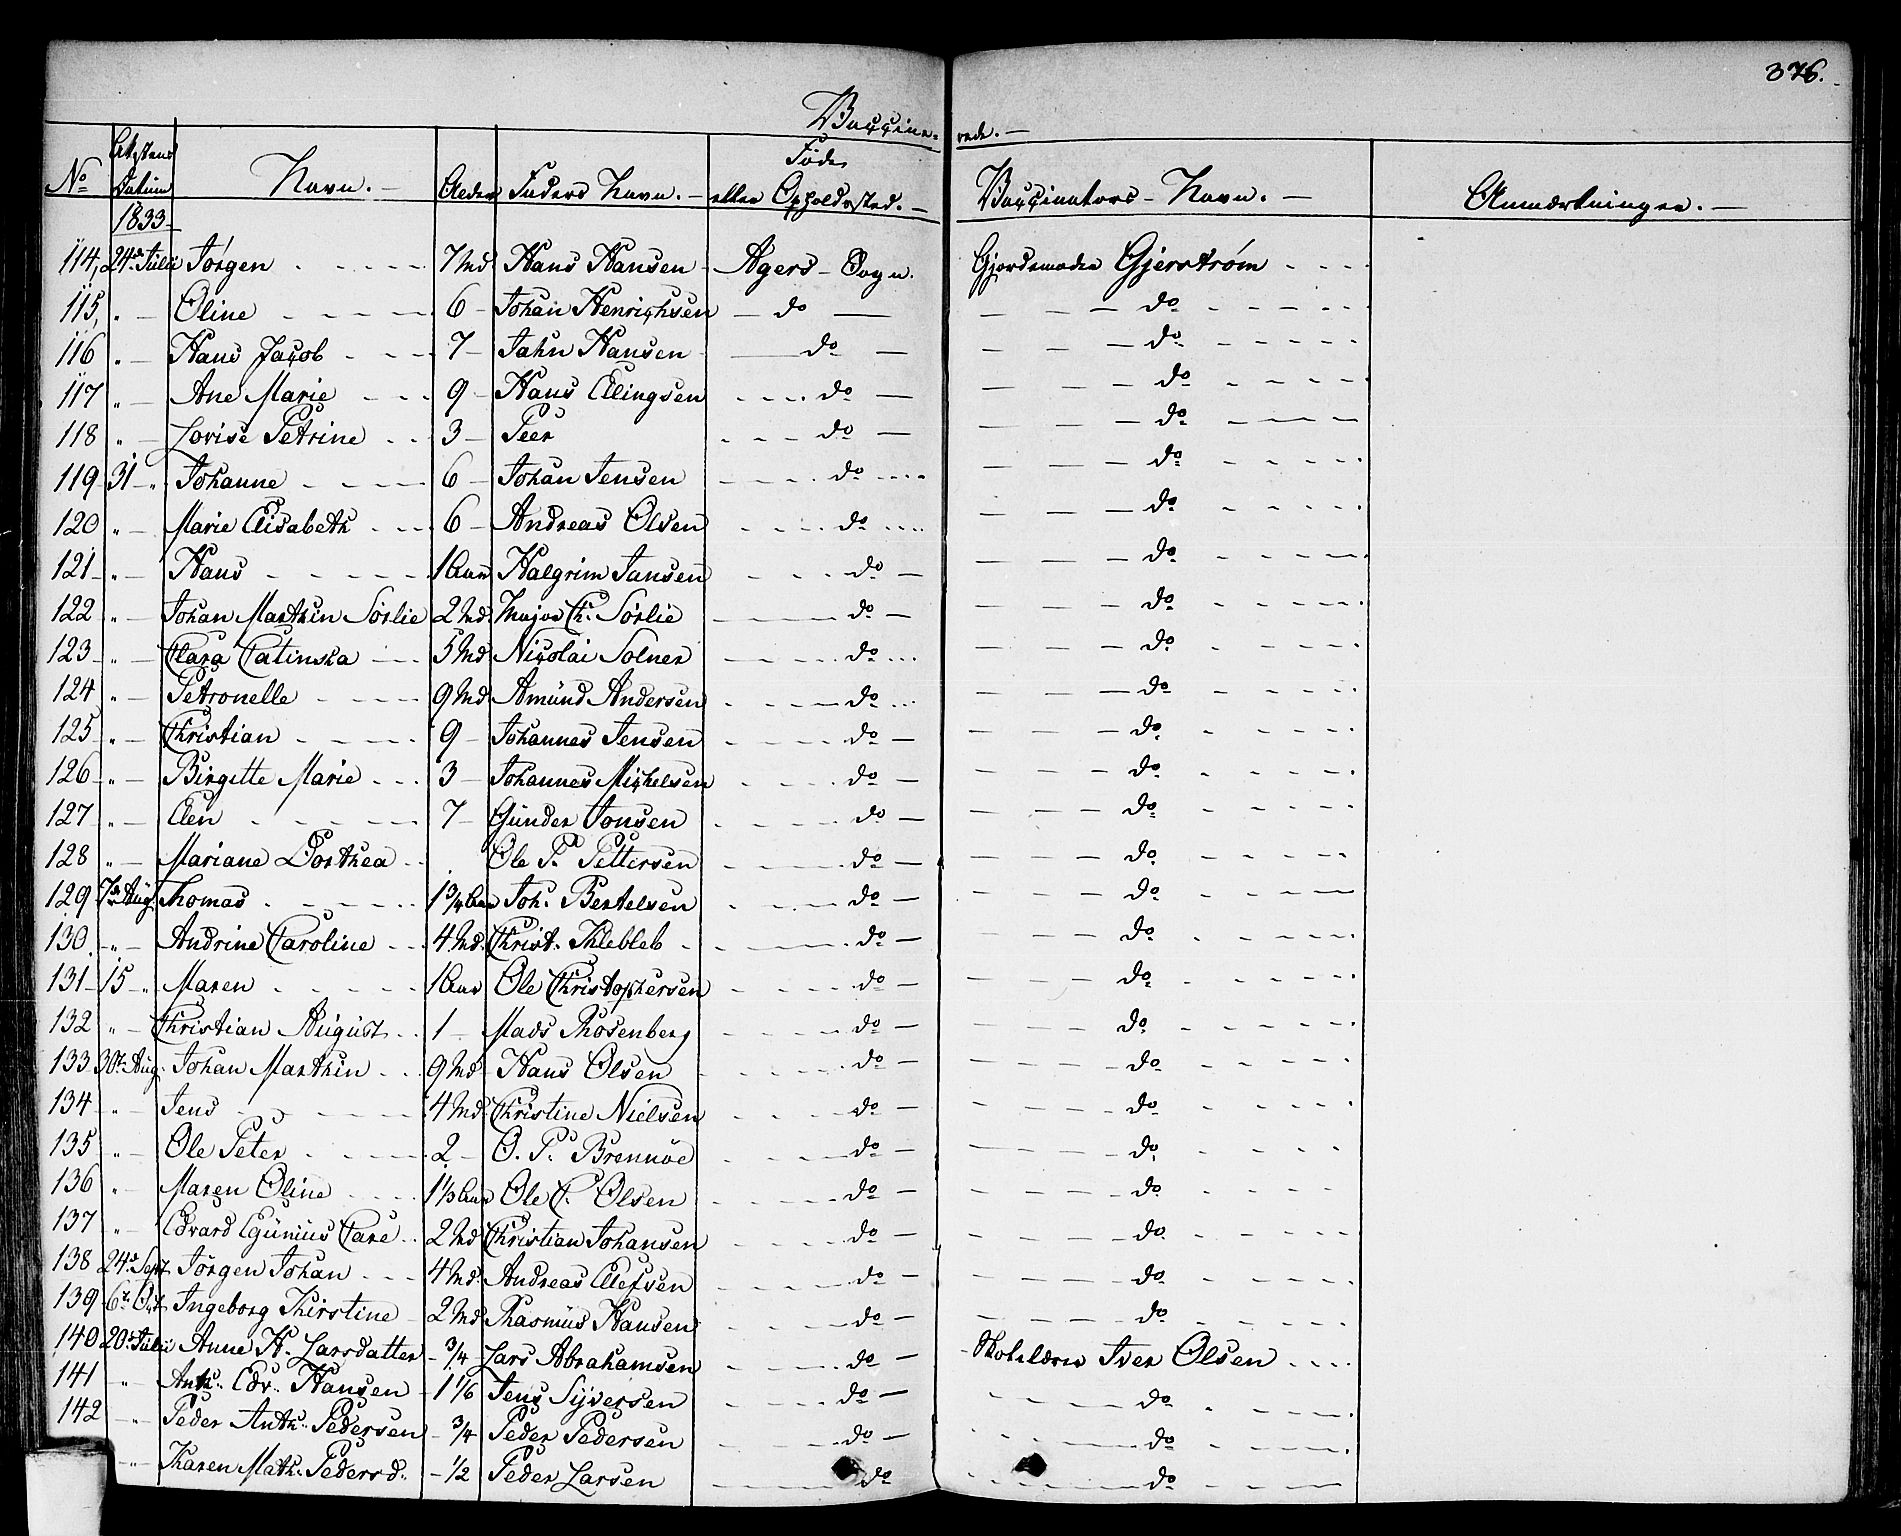 376.
Vaccine- rede. —
No Attestens Datum Navn. — Alder Faders Navn. — Føde eller Opholdssted. — Vaccinators Navn. — Anmærkninger. —
1833
114, 24de Julii Jørgen 7 Md Hans Hansen Agers Sogn. Gjordemoder Gjerstrøm
115, " Oline 6 Johan Henrichsen do do
116 " Hans Jacob 7 Jahn Hansen do do
117 " Ane Marie 9 Hans Elingsen do do
118 " Lovise Petrine 3 Peer do do
119 31 " Johanne 6 Johan Jensen do do
120 " Marie Elisabeth 6 Andreas Olsen do do
121 " Hans 1 Aar Halgrim Jansen do do
122 " Johan Marthin Sørlie 2 Md. Major Ch. Sørlie do do
123 " Clara Catinska 5 Md Nicolai Solner do do
124 " Petronelle 9 Md Amund Andersen do do
125 " Christian 9 Johannes Jensen do do
126 " Birgitte Marie 3 Johannes Michelsen do do
127 " Elen 7 Gunder Jonsen do do
128 " Mariane Dorthea Ole P. Pettersen do do
129 7de Aug. Thomas 1 3/4 Aar Joh. Bertelsen do do
130 " Andrine Caroline 4 Md. Christ. Klebleb do do
131 15 " Maren 1 Aar Ole Christophersen do do
132 " Christian August 1 Mads Rosenberg do do
133 30te Aug. Johan Marthin 9 Md Hans Olsen do do
134 " Jens 4 Md. Christine Nielsen do do
135 " Ole Peter 2 O. P. Brennøe do do
136 " Maren Oline 1 1/3 Aar Ole C. Olsen do do
137 " Edvard Egunius Care 2 Md Christian Johansen do do
138 24de Sept. Jørgen Johan 4 Md. Andreas Elefsen do do
139 6te Oct. Ingeborg Kirstine 2 Md Rasmus Hansen do do
140 20de Julii Anne H. Larsdatter 3/4 Lars Abrahamsen do Skolelærer Iver Olsen
141 " Anth. Edv. Hansen 1 1/6 Jens Syversen do do
142 " Peder Anth. Pedersen 3/4 Peder Pedersen do do
" Karen Math. Pedersd. 1/2 Peder Larsen do do